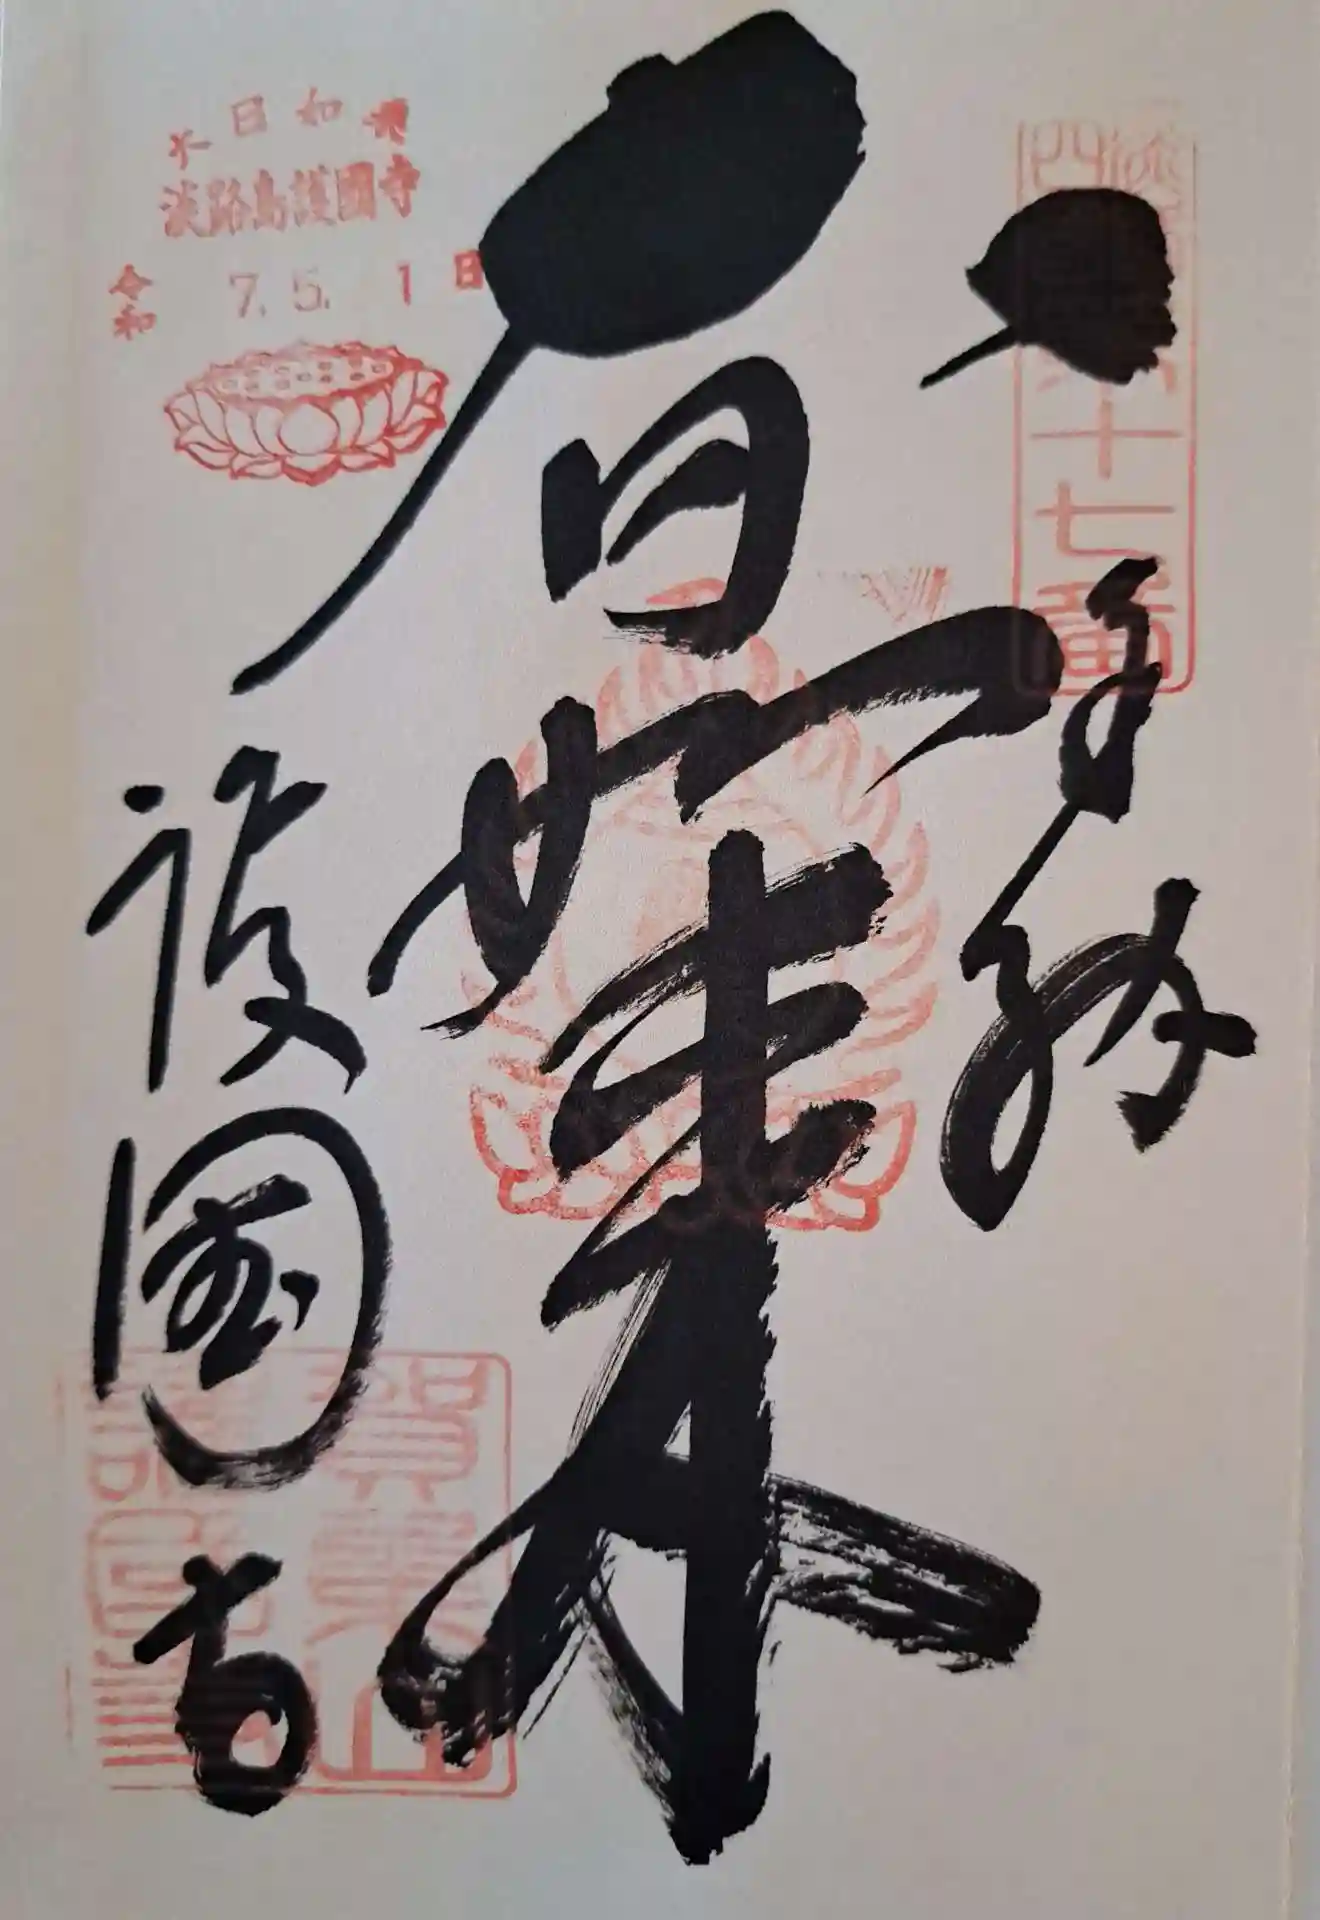 十七番
奉納
大日如来
護國寺
大日如来
淡路島護國寺
令和 7. 5. 1日
賀集山
護國寺